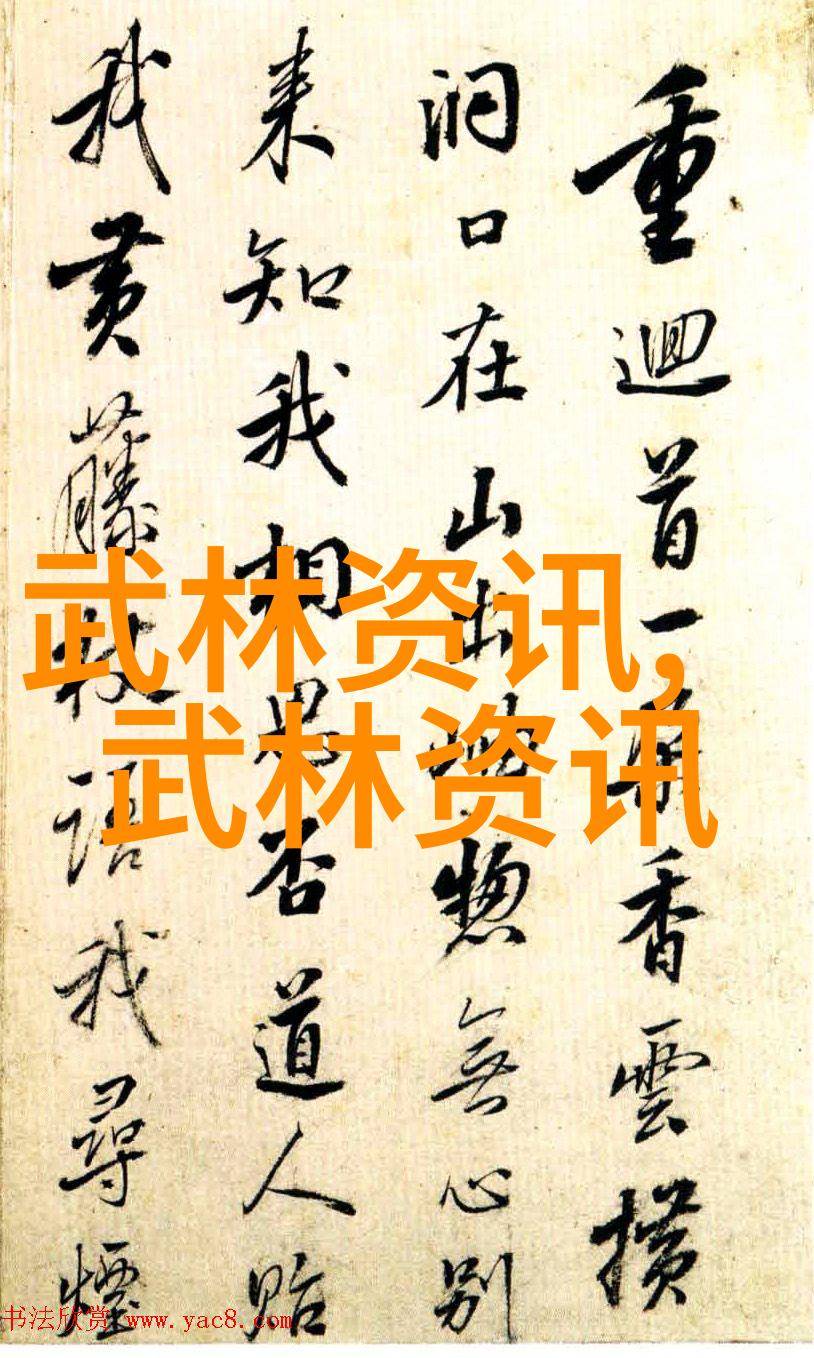 重迴首一香雲横
洞口在山出岫惣無心别
来知我相思否道人貽
我黄藤杖語我尋煙
武林资讯,
武林资讯
书法欣赏 www.yac8.com